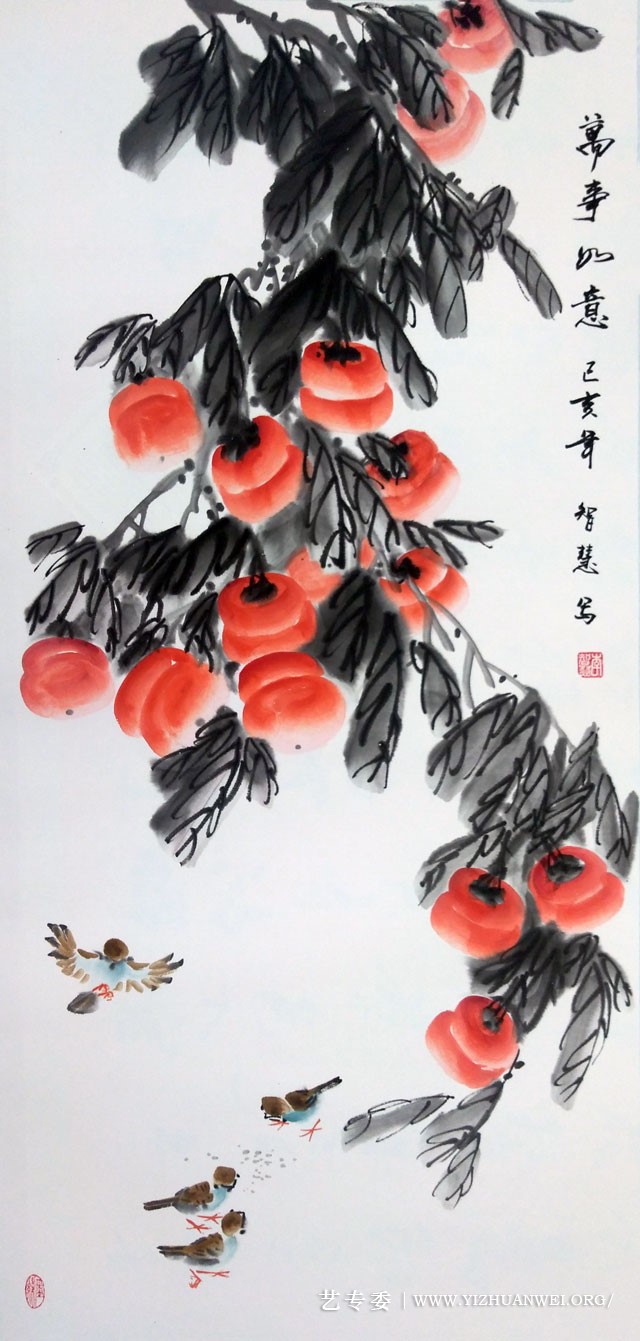 萬事如意 己亥年 智慧写
艺专委 | WWW.YIZHUANWEI.ORG/